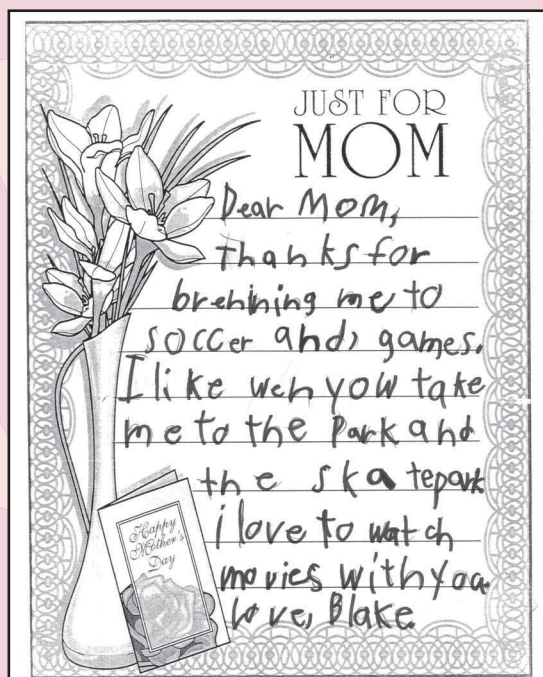 JUST FOR
MOM
Dear Mom,
thanks for
brehining me to
soccer and, games.
I like weh yow take
me to the Park and
the skatepark
i love to watch
movies with you
love, Blake.
Happy
Mother's
Day